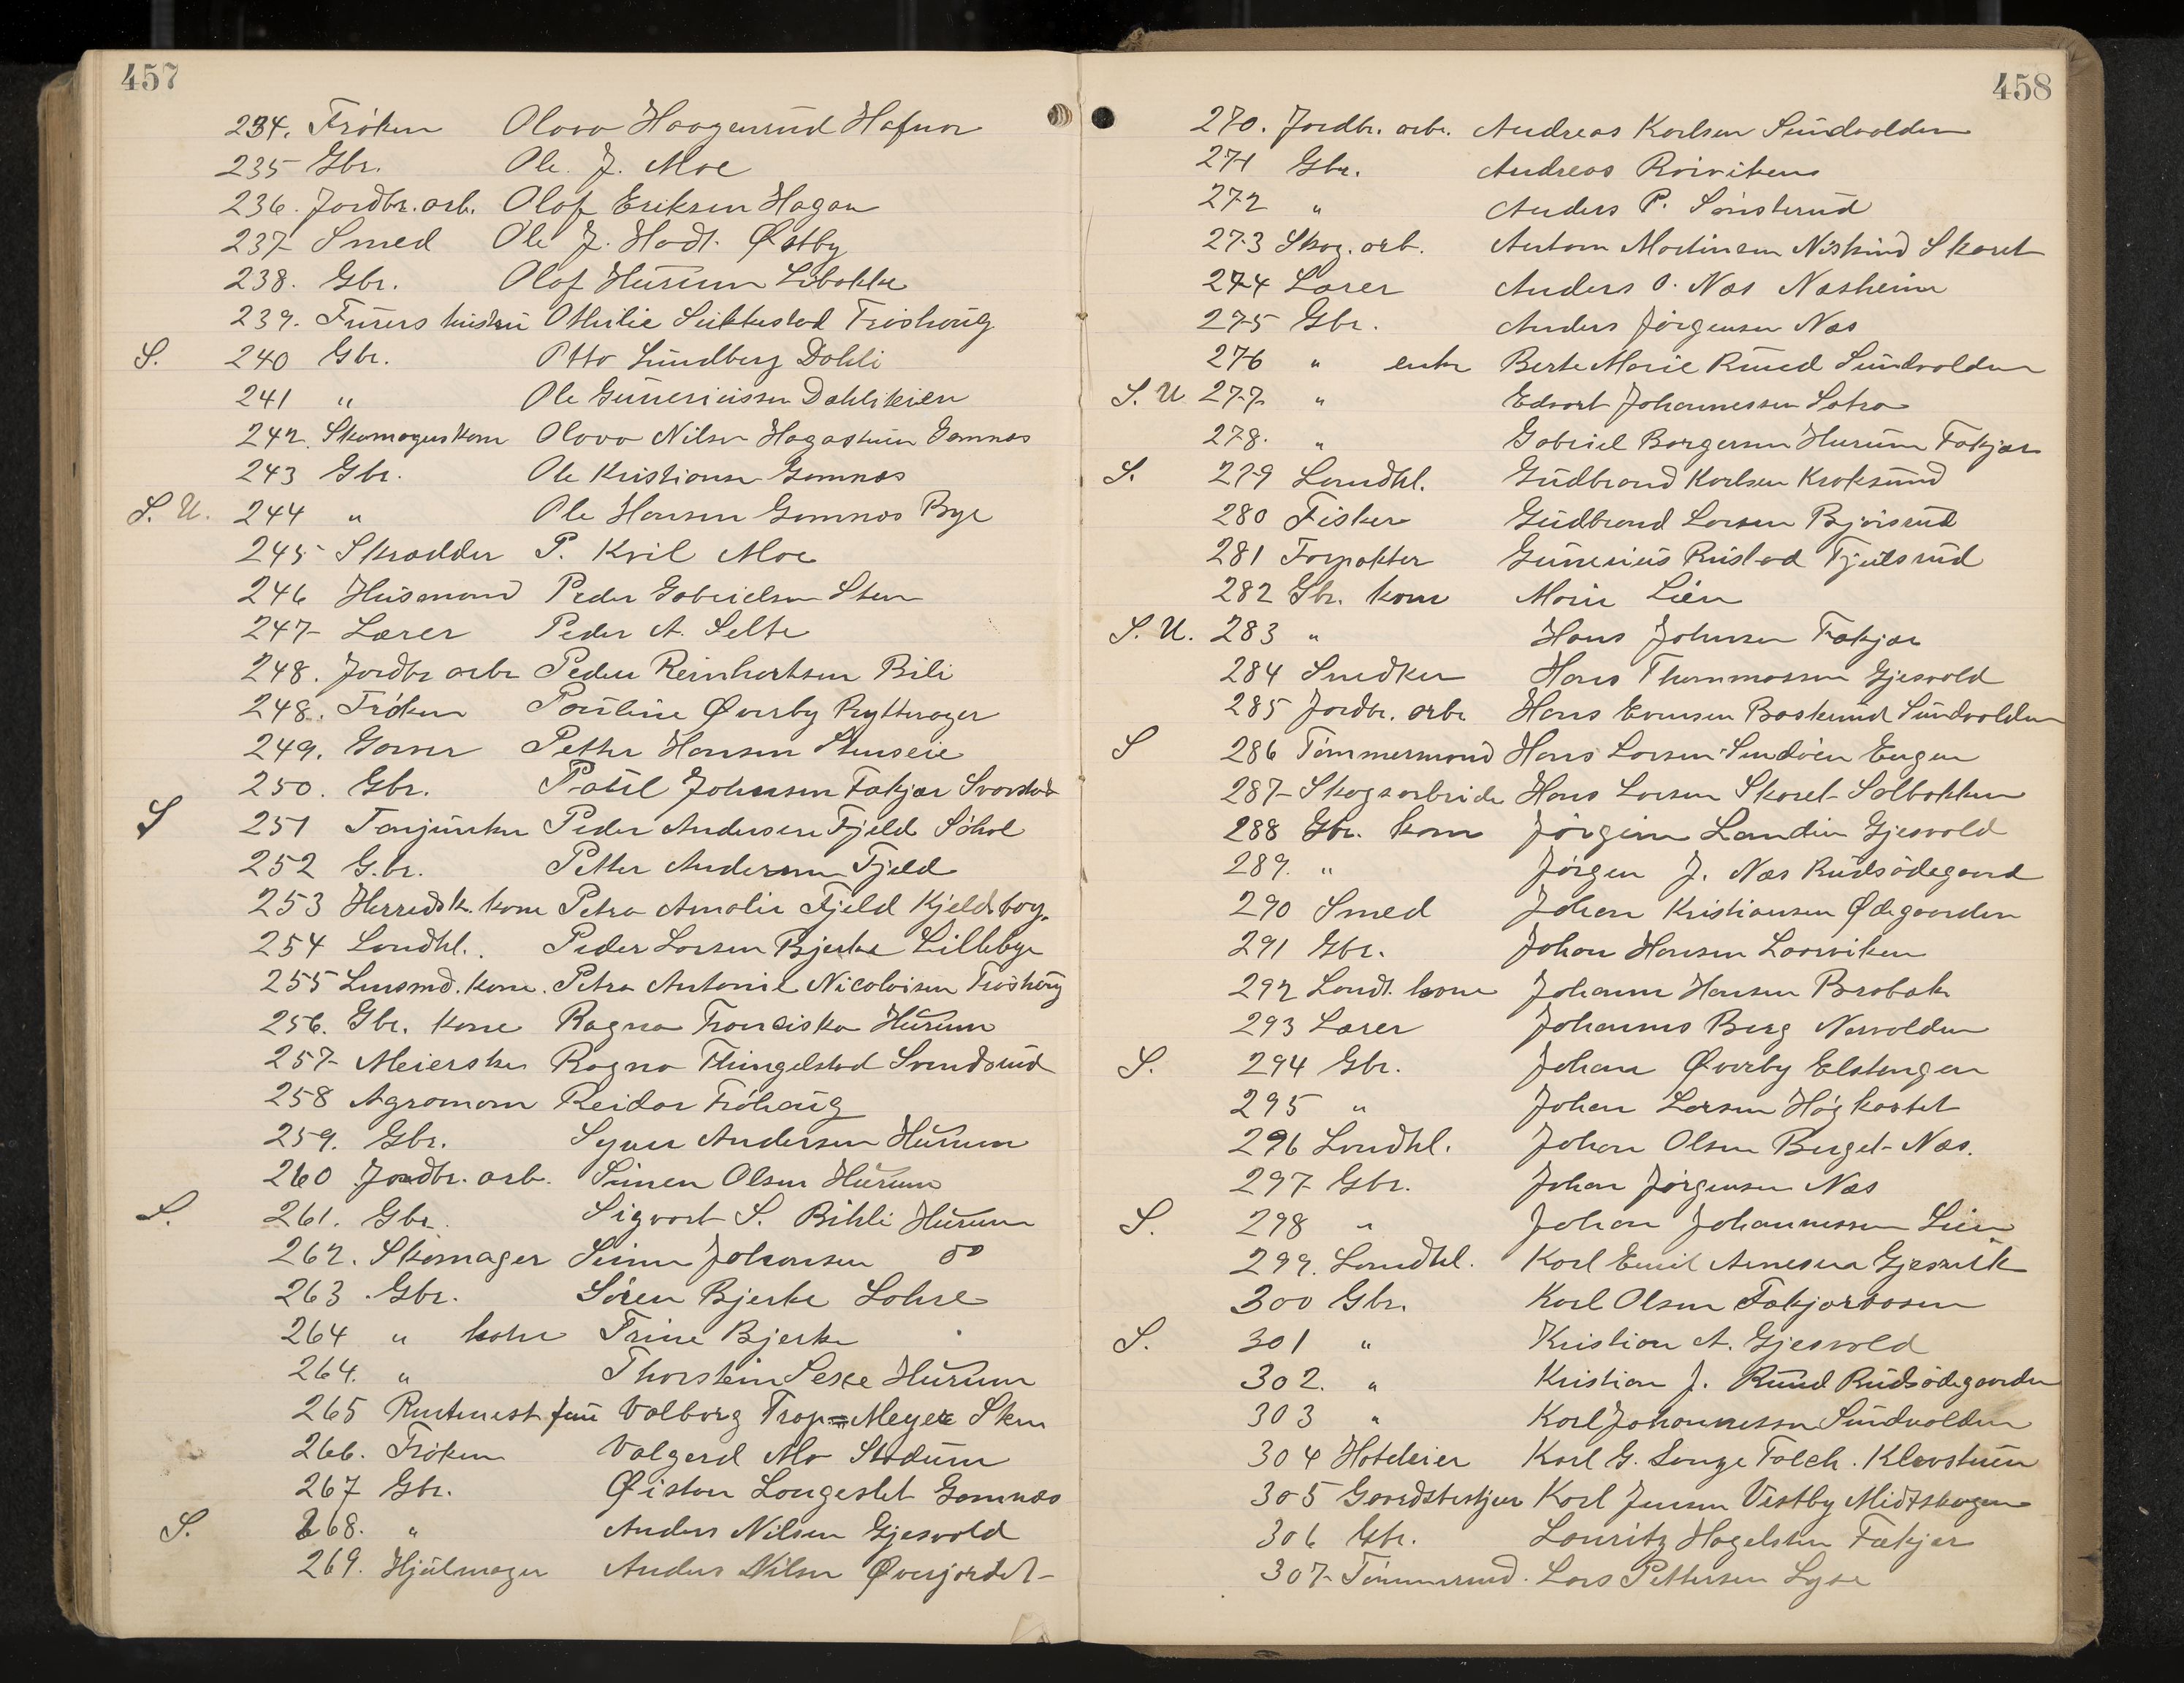 457
234. Frøken Olava Haagensrud Hafnor
235 Gbr. Ole J. Moe
236. Jordbr. arb. Olaf Eriksen Hagan
237 Smed Ole J. Hadt. Østby
238. Gbr. Olaf Hurum Libakke
239. Furers hustru Othilie Frøshoug
S. 240 Gbr. Otto Lundberg Dahli
241 " Ole Guneriussen
242. Skomagerkone Olava Nilsen Hagastuen Gomnæs
243 Gbr. Ole Kristiansen Gomnæs
S. U. 244 " Ole Hansen Gomnæs Bye
245 Skrædder P. Kvil Moe
246 Husmand Peder Gabrielsen Sten
247 Lærer Peder A. Selte
248. Jordbr arbr Peder Reinhartsen Bili
248. Frøken Pauline Øverby Rytterager
249. Garver Petter Hansen Stenseie
250. Gbr. Paul Johnsen Fækjær
S 251 Peder Andersen Fjeld Söhol
252 G.br. Petter Andersen Fjeld
253 Herredsk. kone Petra Amalie Fjeld Kjeldsbog.
254 Landhl. Peder Larsen Bjerke Lillebye
255 Lensmd. kone. Petra Antonie Nicolaisen Frøshoug
256. Gbr. kone Ragna Franciska Hurum
257 Meierske Ragna Thingelstad Svendsrud
258 Agronom Reidar Fröhaug
259. Gbr. Syver Andersen Hurum
260 Jordbr. arb. Simen Olsen Hurum
S. 261. Gbr. Sigvart S. Bihli Hurum
262. Skomager Simen Johansen do
263. Gbr. Sören Bjerke Lohre
264 " kone Trine Bjerke
264. " Thorstein Sexe Hurum
265 Rentmest. frue Valborg Trap=Meyer Sten
266. Frøken Valgerd Mo Stadum
267 Gbr. Øistan Langeslet Gomnæs
S. 268. " Anders Nilsen Gjesvold
269. Hjulmager Anders Nilsen Øverjordet
458
270. Jordbr. arbr. Andreas Karlsen Sundvolden
271 Gbr. Andreas Rörviken
272 " Anders P. Sönsterud
273 Skog. arb. Anton Martinsen Niskind Skaret
274 Lærer Anders O. Næs Næsheim
275 Gbr. Anders Jörgensen Næs
276 " enke Berte Marie Ruud Sundvolden
S. U 277 " Edvart Johannessen Sætra
278. " Gabriel Borgersen Hurum Fækjær
S. 279 Landhl. Gudbrand Karlsen Kroksund
280 Fisker Gudbrand Larsen Bjørsrud
281 Forpakter Gunerius Rustad Fjulsrud
282 Gbr. kone Marie Lien
S. U. 283 " Hans Johnsen Fækjær
284 Snedker Hans Thommassen Gjesvold
285 Jordbr. arbr Hans Evensen Baskerud Sundvolden
S 286 Tömmermand Hans Larsen Sundöen Engen
287 Skogsarbeide Hans Larsen Skaret Solbakken
288 Gbr. kone Jörgine Landin Gjesvold
289. " Jörgen J. Næs Rudsödegaard
290 Smed Johan Kristiansen Ødegaarden
291 Gbr. Johan Hansen Laarviken
292 Landt. kone Johanne Hansen Brobak
293 Lærer Johannes Berg Nervolden
S. 294 Gbr. Johan Øverby Elstangen
295 " Johan Larsen Högkastet
296 Landhl. Johan Olsen Berget-Næs.
297 Gbr. Johan Jörgensen Næs
S. 298 " Johan Johannessen Lien
299. Landhl. Karl Emil Arnesen Gjesvik
300 Gbr. Karl Olsen Fækjærbosen
S. 301 " Kristian A. Gjesvold
302. " Kristian J. Ruud Rudsödegaarden
303 " Karl Johannessen Sundvolden
304 Hoteleier Karl G. Lange Falch. Klevstuen
305 Gaardsbestyer Karl Jensen Vestby Midtskogen
306 Gbr. Lauritz Hagelsten Fækjær
307 Tömmermd. Lars Pettersen Lyse